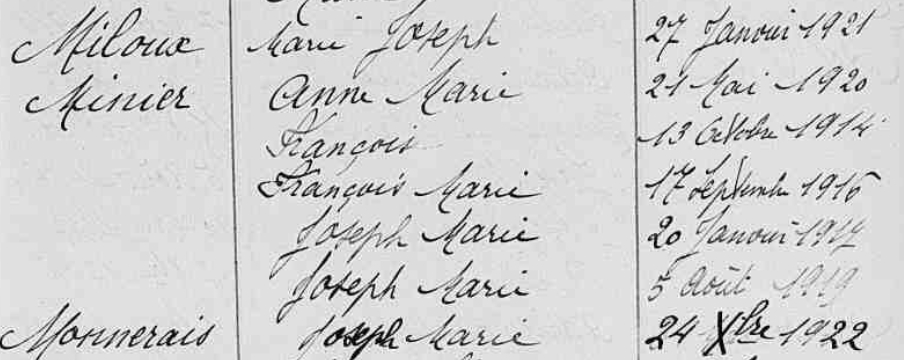 Miloux Marie Joseph 27 Janvier 1921
Minier Anne Marie 21 Mai 1920
François 13 Octobre 1914
François Marie 17 Septembre 1916
Joseph Marie 20 Janvier 1917
Joseph Marie 5 Août 1919
Monnerais Joseph Marie 24 Xbre 1922